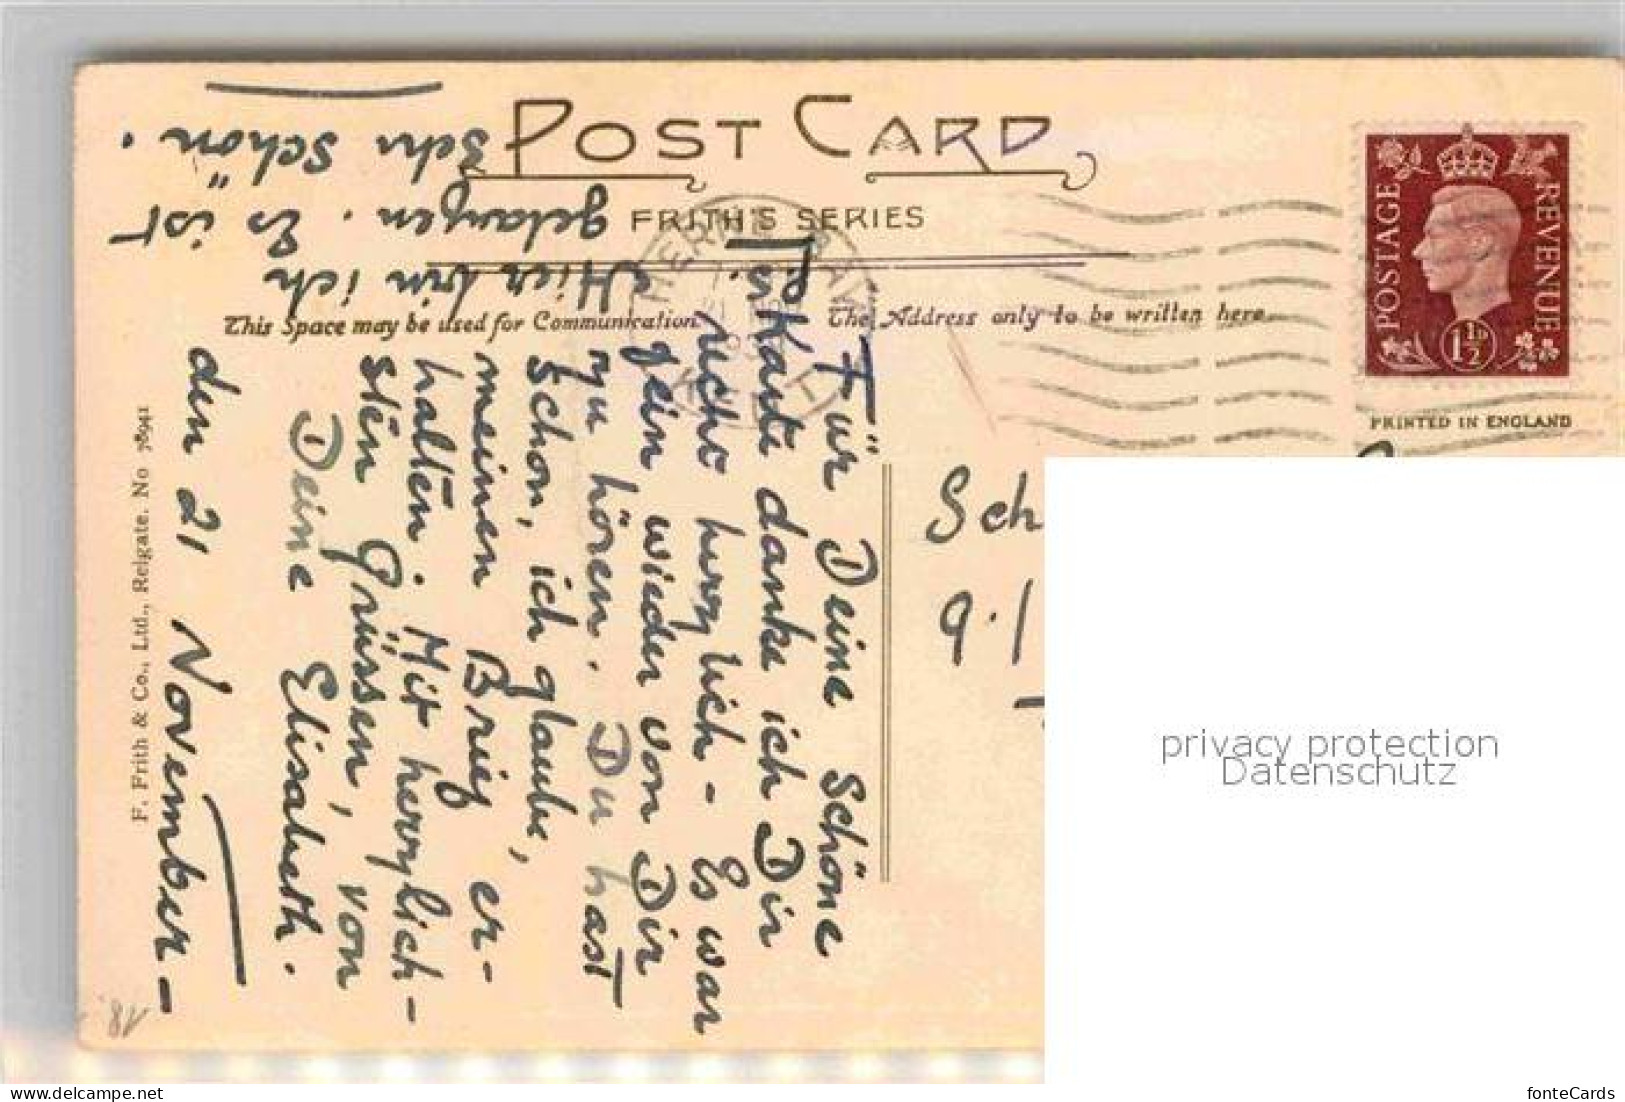 POST CARD
FRITH'S SERIES
This Space may be used for Communication.
The Address only to be written here.
POSTAGE
REVENUE
1½D
PRINTED IN ENGLAND
HERNE BAY
F. Frith & Co., Ltd., Reigate. No 78941
Sch
9.1
den 21 November –
Für Deine schöne
Karte danke ich Dir
recht herzlich – Es war
fein wieder von Dir
zu hören. Du hast
schon, ich glaube,
meinen Brief er-
halten. Mit herzlich-
sten Grüssen, von
Deine Elisabeth.
Hier bin ich
gefangen. Es ist
sehr schön.
privacy protection
Datenschutz
fonteCards